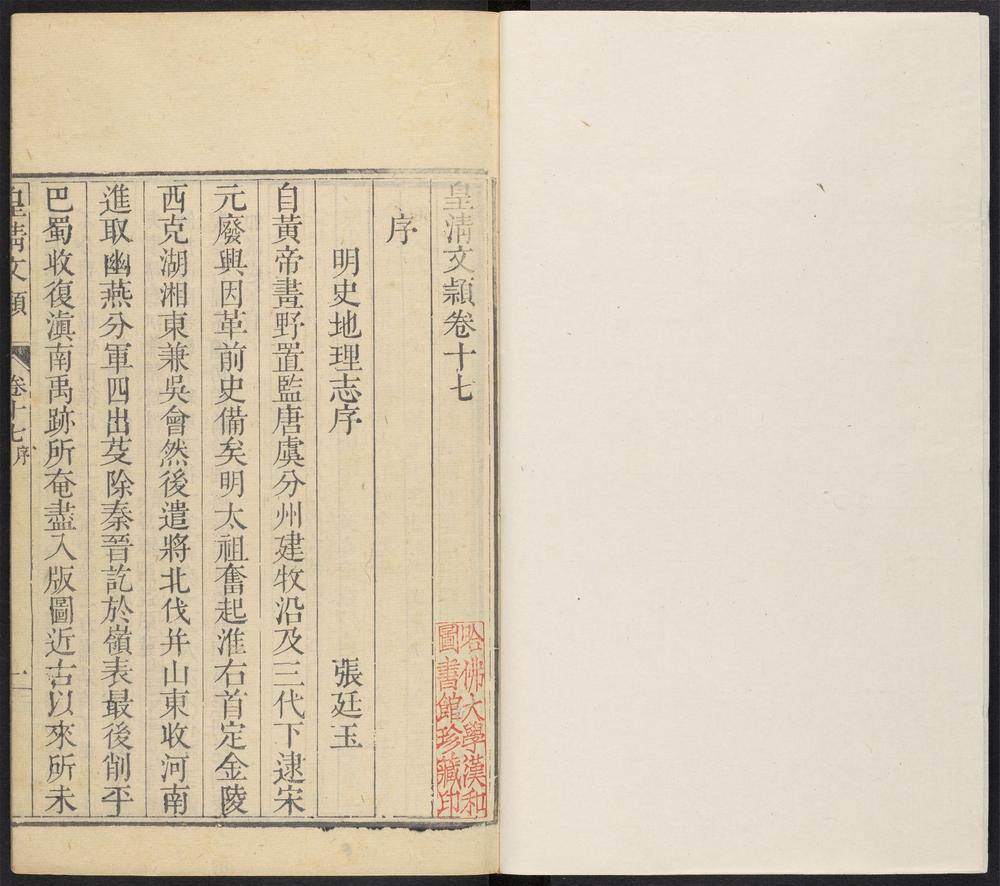 皇清文頴卷十七
序
明史地理志序 張廷玉
自黃帝畫野置監唐虞分州建牧沿及三代下逮宋
元廢興因革前史備矣明太祖奮起淮右首定金陵
西克湖湘東兼吳會然後遣將北伐并山東收河南
進取幽燕分軍四出芟除秦晉訖於嶺表最後削平
巴蜀收復滇南禹跡所奄盡入版圖近古以來所未
皇清文頴 卷十七序 一
哈佛大學漢和
圖書館珍藏印